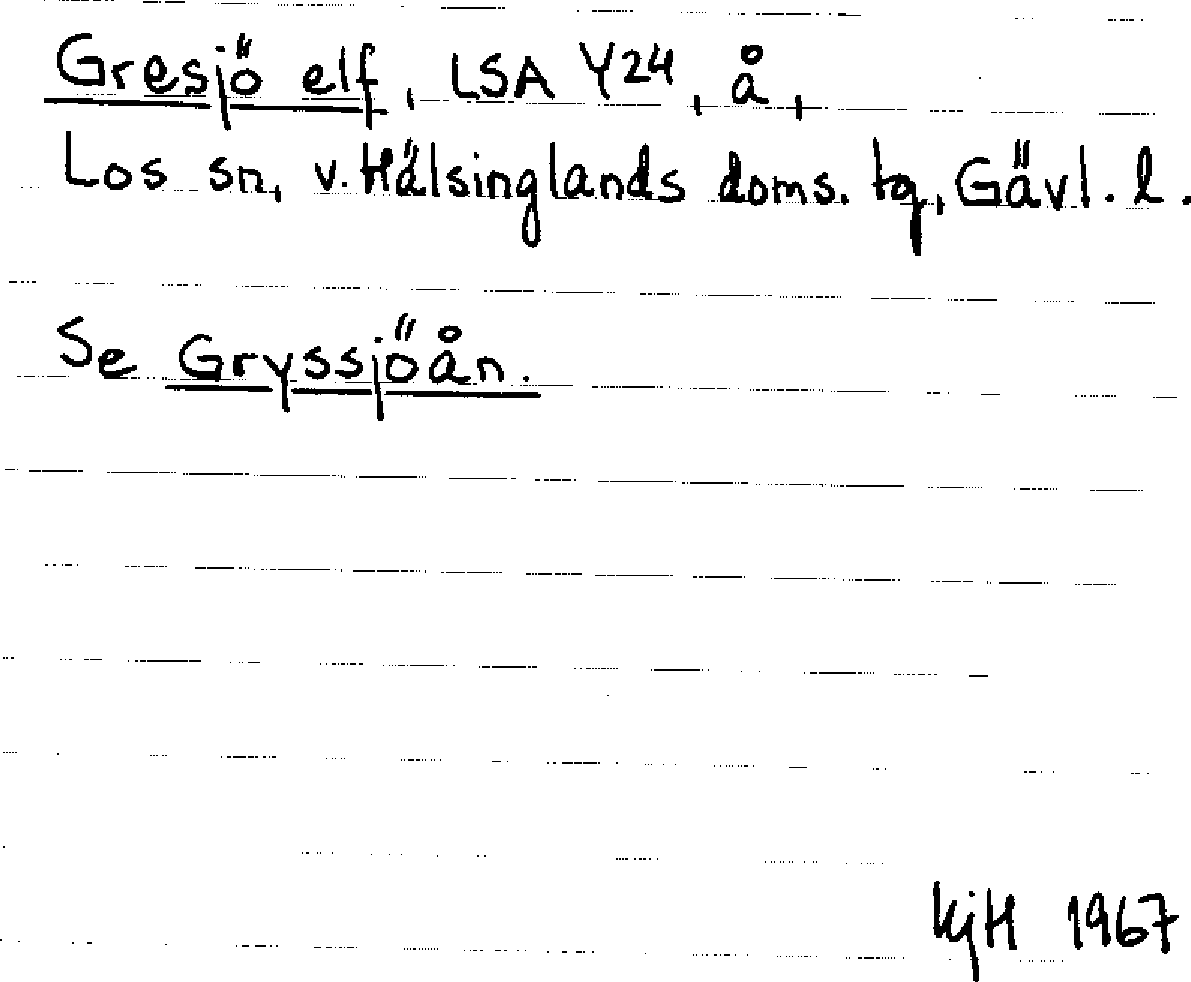 Gresjö elf, LSA Y24, å,
Los sn, v. Hälsinglands doms. tg, Gävl. l.
Se Gryssjöån.
KjH 1967